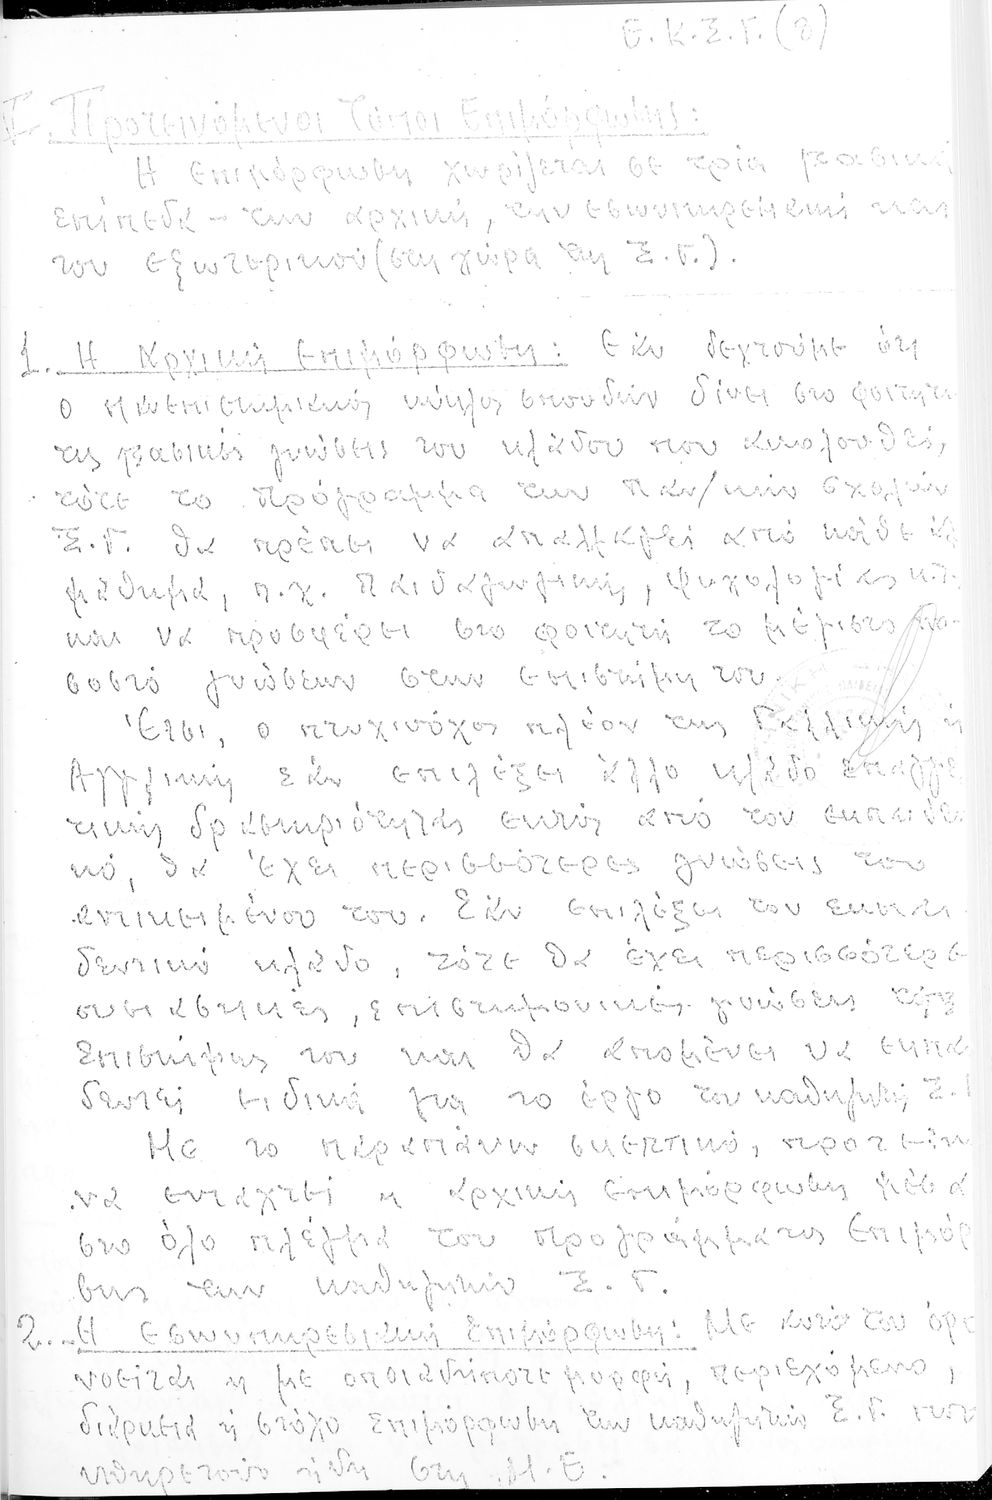 Ε.Κ.Ξ.Γ. (2)
I. Προτεινόμενοι Τύποι Επιμόρφωσης:
Η επιμόρφωση χωρίζεται σε τρία βασικά
επίπεδα - την αρχική, την ενδουπηρεσιακή και
του εξωτερικού (στη χώρα της Ξ.Γ.).
1. Η Αρχική Επιμόρφωση: Εάν δεχτούμε ότι
ο πανεπιστημιακός κύκλος σπουδών δίνει στο φοιτητή
τις βασικές γνώσεις του κλάδου που ακολουθεί,
τότε το πρόγραμμα των Παν/κών σχολών
Ξ.Γ. θα πρέπει να απαλλαγεί από κάθε
μάθημα, π.χ. Παιδαγωγικής, Ψυχολογίας κ.τ.
και να προσφέρει στο φοιτητή το μέγιστο πο-
σοστό γνώσεων στην επιστήμη του.
Έτσι, ο πτυχιούχος πλέον της Γαλλικής ή
Αγγλικής εάν επιλέξει άλλο κλάδο επαγγε
τικής δραστηριότητας εκτός από τον εκπαιδευ
κό, θα έχει περισσότερες γνώσεις του
αντικειμένου του. Εάν επιλέξει τον εκπαι
δευτικό κλάδο, τότε θα έχει περισσότερε
ουσιαστικές, επιστημονικές γνώσεις της
Επιστήμης του και θα απομένει να εκπαι
δευτεί ειδικά για το έργο του καθηγητή Ξ.Γ
Με το παραπάνω σκεπτικό, προτείνω
να ενταχτεί η αρχική επιμόρφωση μέσα
στο όλο πλέγμα του προγράμματος Επιμόρ
σης των καθηγητών Ξ.Γ.
2. Η Ενδουπηρεσιακή Επιμόρφωση: Με αυτό τον όρο
νοείται η με οποιαδήποτε μορφή, περιεχόμενο,
διάρκεια ή στόχο επιμόρφωση των καθηγητών Ξ.Γ. που
υπηρετούν ήδη στη Μ.Ε.